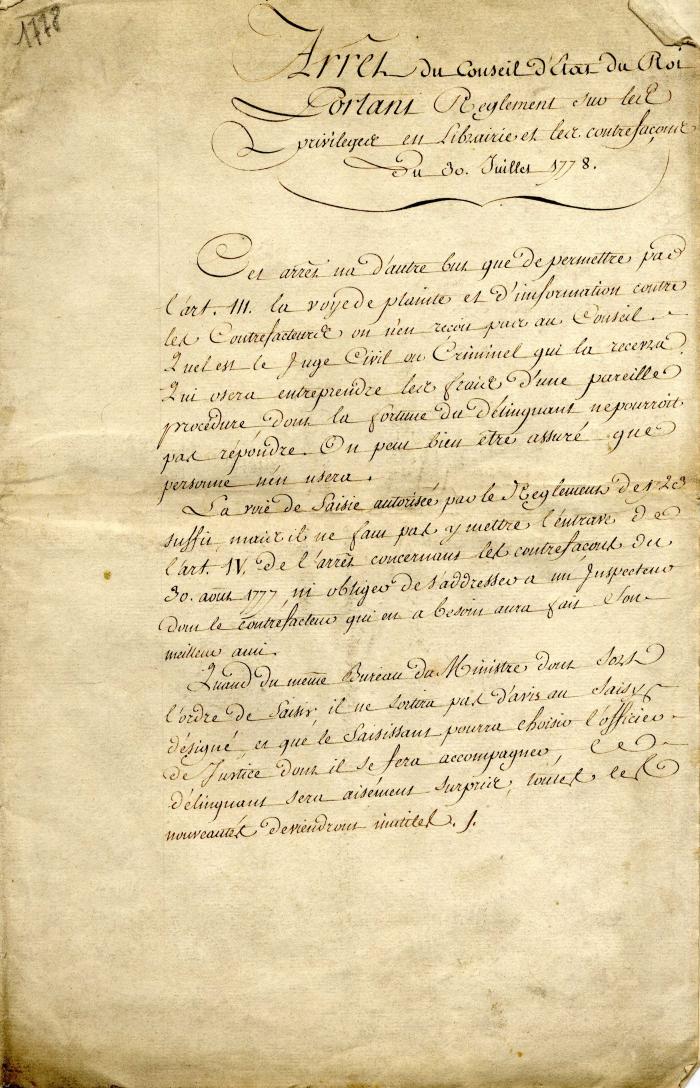 1778
Arrêt du Conseil d'Etat du Roi
Portant Reglement sur les
privileges en Librairie et les contrefaçons
Du 30. Juillet 1778.
Cet arrêt n'a d'autre but que de permettre par
l'art. III. la voye de plainte et d'information contre
les Contrefacteurs on n'en recoit pas au Conseil.
Quel est le Juge Civil ou Criminel qui la recevra.
Qui osera entreprendre les frais d'une pareille
procedure dont la fortune du délinquant ne pourroit
pas répondre. On peut bien être assuré que
personne n'en usera.
La voie de Saisie autorisée par le Reglement de 1723
suffit, mais il ne faut pas y mettre l'entrave de
l'art. IV. de l'arrêt concernant les contrefaçons du
30. aout 1777, ni obliger de s'addresser a un Inspecteur
dont le contrefacteur qui en a besoin aura fait son
meilleur ami.
Quand du même Bureau du Ministre dont sort
l'ordre de Saisir, il ne sortira pas d'avis au Saisy
désigné, et que le Saisissant pourra choisir l'officier
de Justice dont il se fera accompagner, le
délinquant sera aisément surpris, toutes les
nouveautés deviendront inutiles.